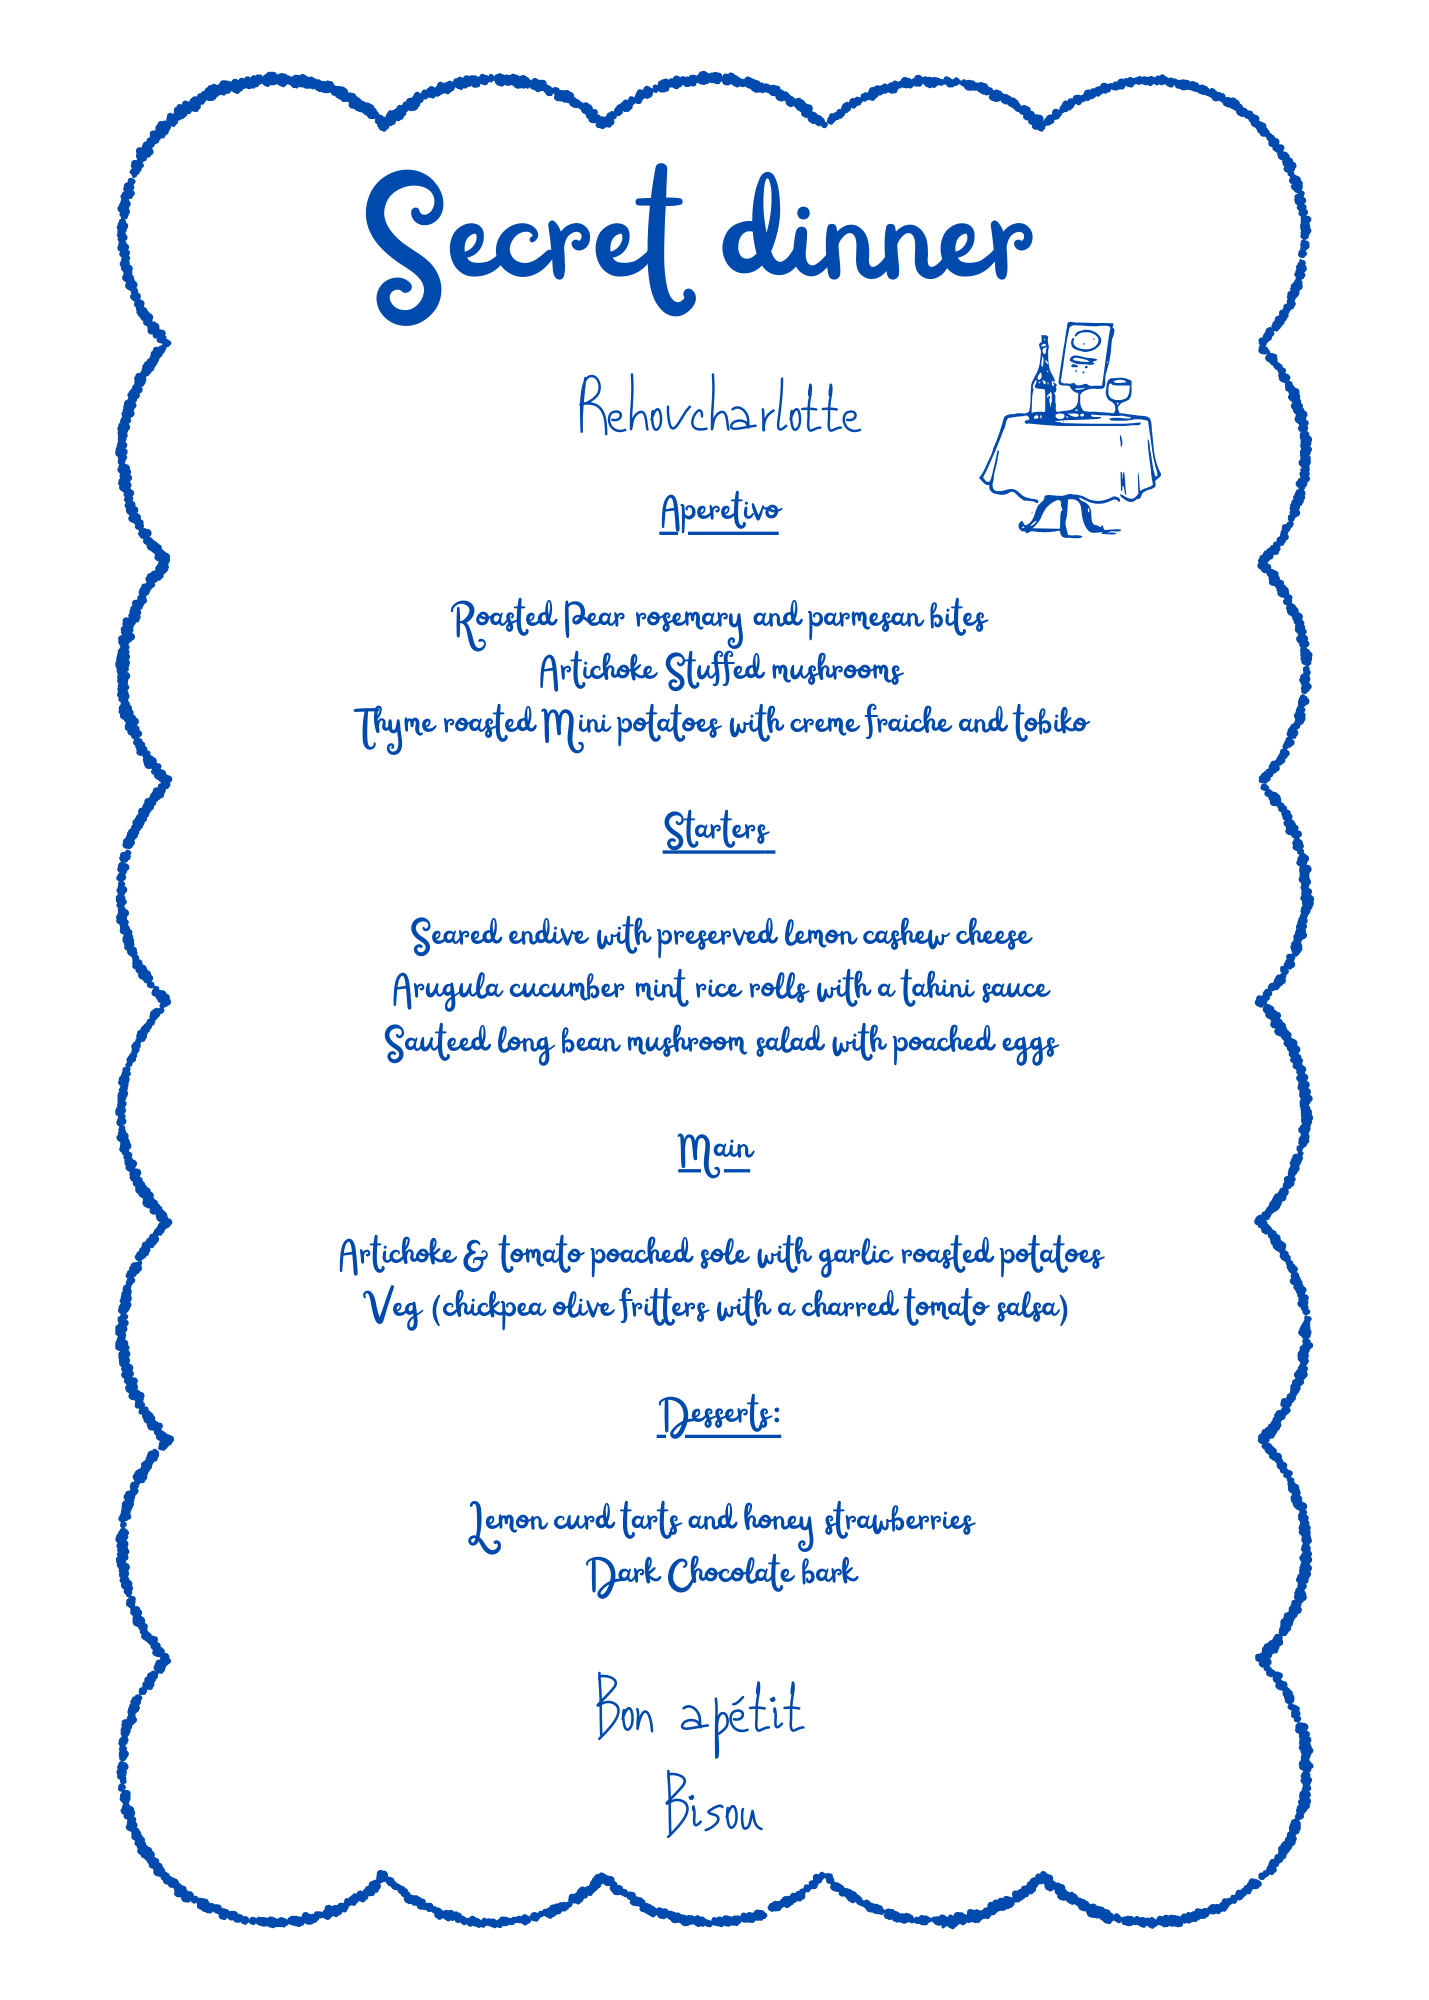 Secret dinner
Rehovcharlotte
Aperetivo
Roasted Pear rosemary and parmesan bites
Artichoke Stuffed mushrooms
Thyme roasted Mini potatoes with creme fraiche and tobiko
Starters
Seared endive with preserved lemon cashew cheese
Arugula cucumber mint rice rolls with a tahini sauce
Sauteed long bean mushroom salad with poached eggs
Main
Artichoke & tomato poached sole with garlic roasted potatoes
Veg (chickpea olive fritters with a charred tomato salsa)
Desserts:
Lemon curd tarts and honey strawberries
Dark Chocolate bark
Bon apétit
Bisou